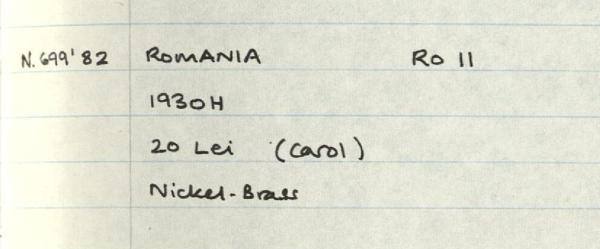 N.699'82 ROMANIA Ro 11
1930H
20 Lei (Carol)
Nickel-Brass